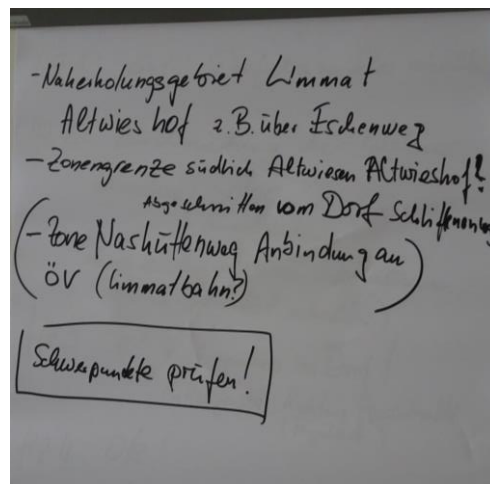 - Naherholungsgebiet Limmat
Altwieshof z.B. über Eschenweg
- Zonengrenze südlich Altwiesen Altwieshof?
Abgeschnitten vom Dorf
(- Zone Nashüttenweg Anbindung an
ÖV (limmatbahn?))
Schwerpunkte prüfen!